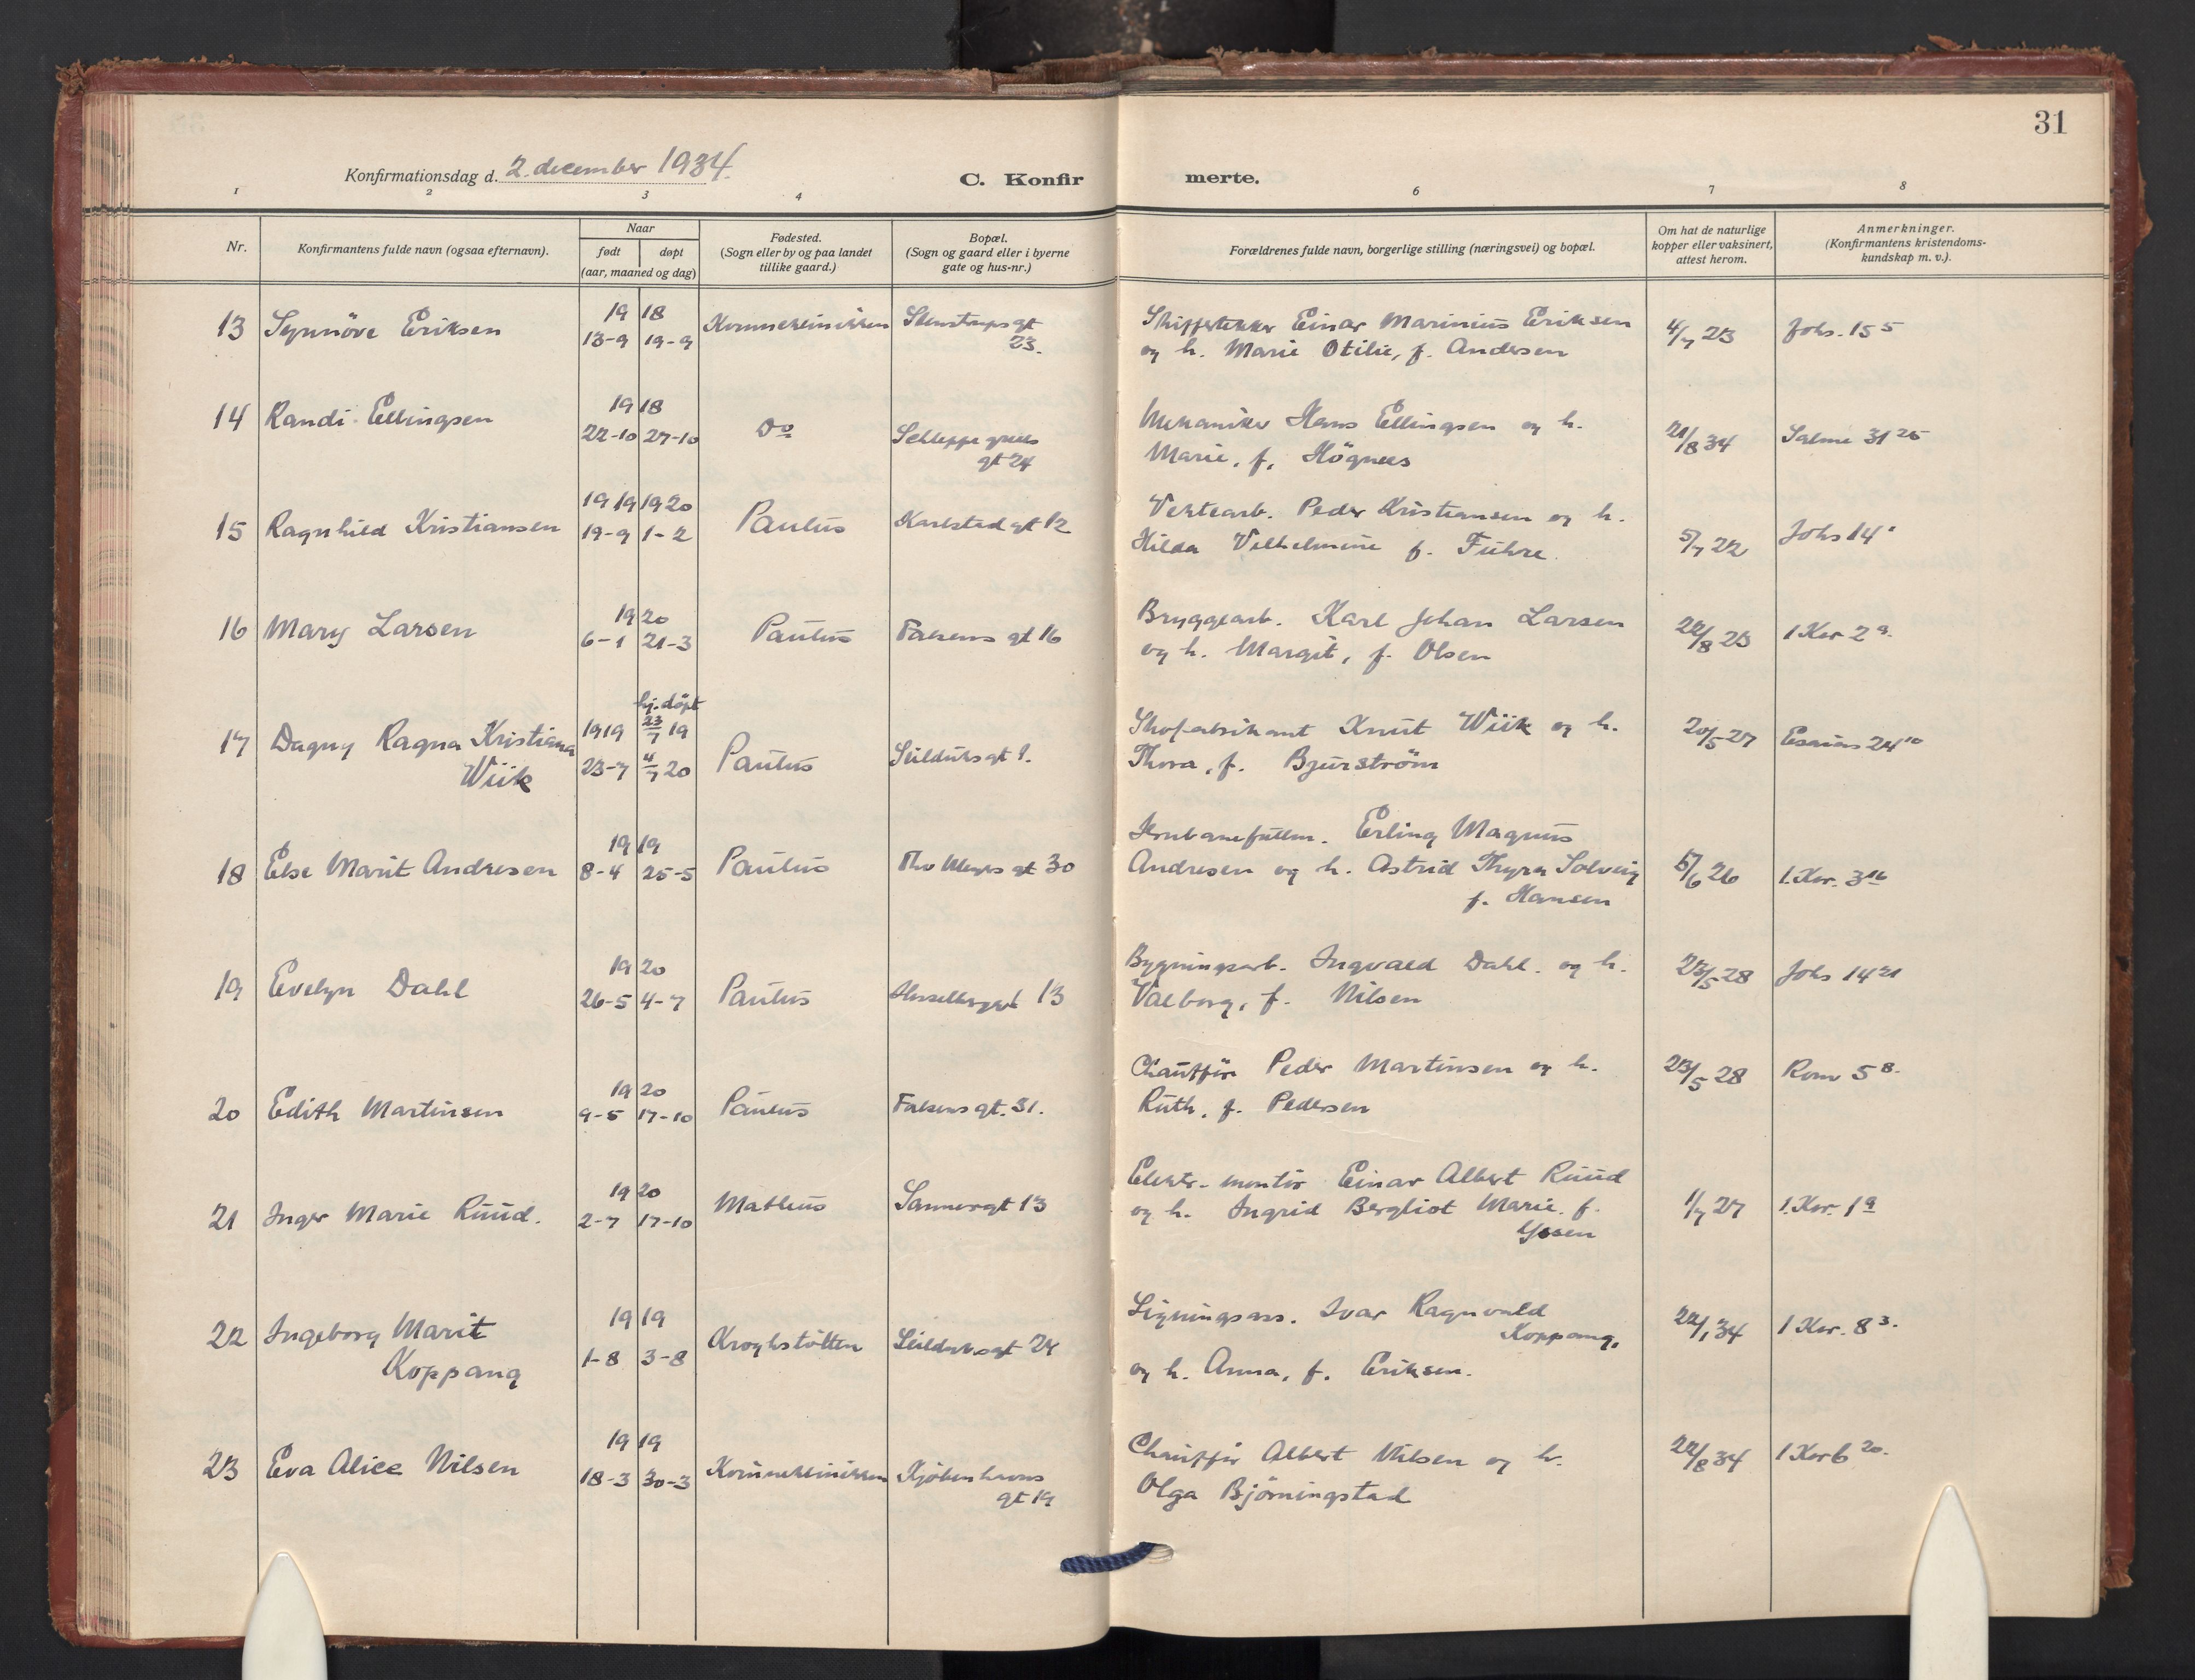 31
Konfirmationsdag d. 2. december 1934.
C. Konfirmerte.
1 2 3 4 6 7 8
Nr.
Konfirmantens fulde navn (ogsaa efternavn).
Naar
født døpt
(aar, maaned og dag)
Fødested.
(Sogn eller by og paa landet
tillike gaard.)
Bopæl.
(Sogn og gaard eller i byerne
gate og hus-nr.)
Forældrenes fulde navn, borgerlige stilling (næringsvei) og bopæl.
Om hat de naturlige
kopper eller vaksinert,
attest herom.
Anmerkninger.
(Konfirmantens kristendoms-
kundskap m. v.).
13 Synnöve Eriksen
19 18
13-9 19-9
Kvinneklinikken
Stenstrupsgt
23.
Skiffertekker Einar Marinius Eriksen
og h. Marie Otilie, f. Andersen
4/7 23
Johs. 15 5
14 Randi Ellingsen
19 18
22-10 27-10
Do
Schleppegrells
gt 24
Mekaniker Hans Ellingsen og h.
Marie, f. Högnes
21/8 34
Salme 31 25
15 Ragnhild Kristiansen
19 19 19 20
19-9 1-2
Paulus
Karlstadgt 12
Verktarb. Peder Kristiansen og h.
Hilda Vilhelmine f. Fuhre.
5/7 22
Johs 14
16 Mary Larsen
19 20
6-1 21-3
Paulus
Falsens gt 16
Bryggearb. Karl Johan Larsen
og h. Margit, f. Olsen
22/8 23
1 Kor 2 9.
17 Dagny Ragna Kristiana
Wiik
hj. döpt
1919 23/7 19
23-7 4/7 20
Paulus
Seilduksgt 9.
Skofabrikant Knut Wiik og h.
Thora, f. Bjurström
20/5 27
Esaias 24 10
18 Else Marit Andresen
19 19
8-4 25-5
Paulus
Thv Meyers gt 30
Jernbanefullm. Erling Magnus
Andresen og h. Astrid Thyra Solveig
f. Hansen
5/6 26
1. Kor. 3 16
19 Evelyn Dahl
19 20
26-5 4-7
Paulus
Hesselbergsgt 13
Bygningsarb. Ingvald Dahl. og h.
Valborg, f. Nilsen
23/5 28
Johs 14 21
20 Edith Martinsen
19 20
9-5 17-10
Paulus
Falsens gt. 31.
Chauffør Peder Martinsen og h.
Ruth, f. Pedersen
23/5 28
Rom 5 8.
21 Inger Marie Ruud.
19 20
2-7 17-10
Matteus
Sannergt 13
Elektr- montör Einar Albert Ruud
og h. Ingrid Bergliot Marie. f.
1/7 27
1. Kor. 1 9
22 Ingeborg Marit
Koppang
19 19
1-8 3-8
Kroghstötten
Seilduksgt 24
Ligningsass. Ivar Ragnvald
Koppang,
og h. Anna, f. Eriksen.
22/1 34
1 Kor. 8 3.
23 Eva Alice Nilsen
19 19
18-3 30-3
Kvinneklinikken
Kjöbenhavns
gt 19
Chauffør Albert Nilsen og h.
Olga Bjömingstad
22/8 34
1 Kor 6 20.